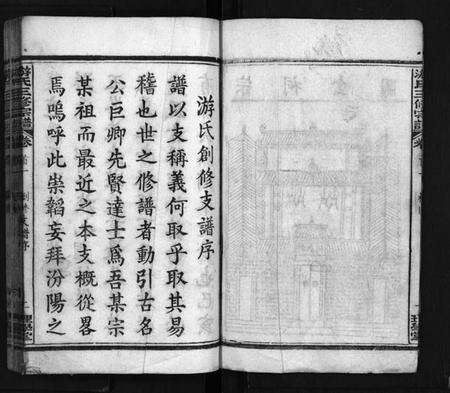 游氏創修支譜序
譜以支稱義何取乎取其易
稽也世之修譜者動引古名
公巨卿先賢達士爲吾某宗
某祖而最近之本支概從畧
焉嗚呼此崇韜妄拜汾陽之
游氏三修宗譜
卷首